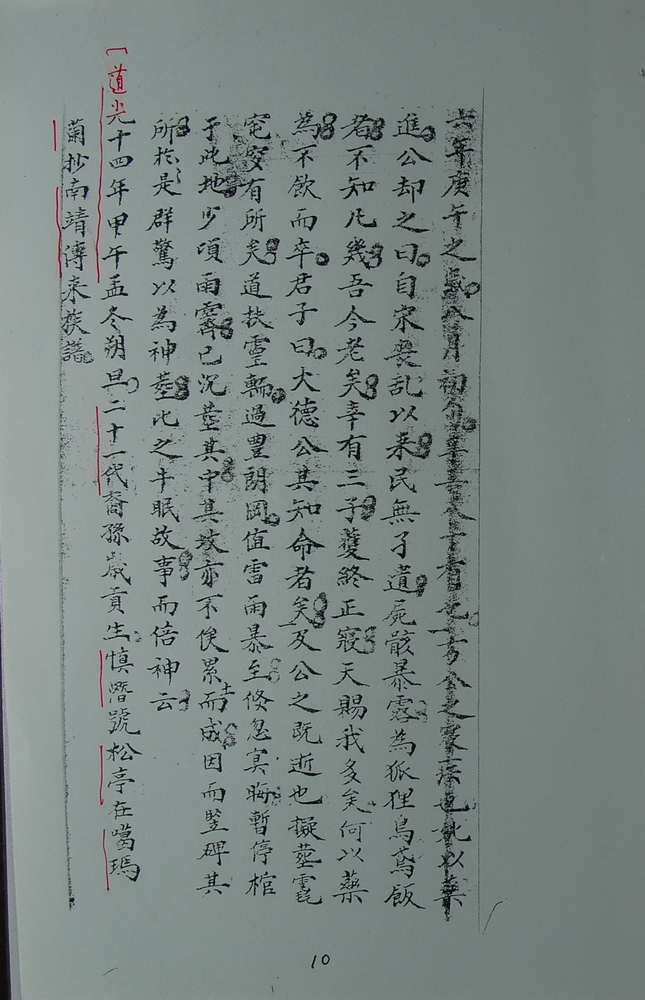 六年庚午之歲八月初
進公却之曰自宋喪乱以来民無孑遺屍骸暴露為狐狸烏鳶飯
者不知凡幾吾今老矣幸有三子獲終正寢天賜我多矣何以藥
為不飲而卒君子曰大德公其知命者矣及公之既逝也擬塟
窀穸有所矣道扶靈輀過豊朗岡值雷雨暴至倏忽冥晦暫停棺
于此地少頃雨霽已沉塟其中其坟亦不俟累土而成因而竪碑其
所於是群驚以為神塟比之牛眠故事而倍神云
道光十四年甲午孟冬朔旦二十一代裔孫歲貢生慎潛號松亭在噶瑪
蘭抄南靖傳来族譜
10